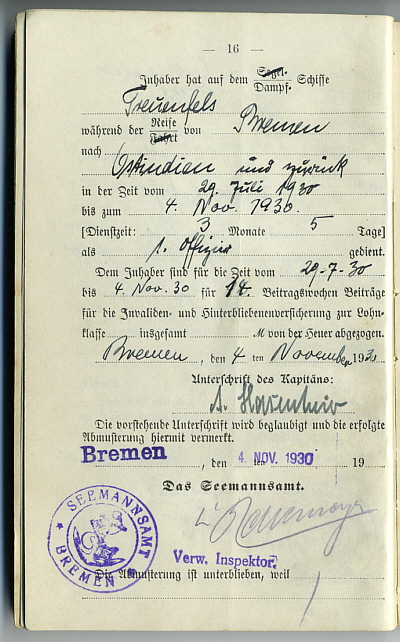 — 16 —
Inhaber hat auf dem Segel- Schiffe
Dampf-
Treuenfels
während der Reise von Bremen
Fahrt
nach
Ostindien und zurück
in der Zeit vom 29. Juli 1930
bis zum 4. Nov. 1930.
[Dienstzeit: 3 Monate 5 Tage]
als 1. Offizier gedient.
Dem Inhaber sind für die Zeit vom 29-7-30
bis 4. Nov. 30 für 14. Beitragswochen Beiträge
für die Invaliden- und Hinterbliebenenversicherung zur Lohn-
klasse insgesamt M von der Heuer abgezogen.
Bremen, den 4 ten November 1930
Unterschrift des Kapitäns:
A.
Die vorstehende Unterschrift wird beglaubigt und die erfolgte
Abmusterung hiermit vermerkt.
Bremen, den 4. NOV. 1930 ten 19
Das Seemannsamt.
SEEMANNSAMT
BREMEN
Verw. Inspektor.
Die Abmusterung ist unterblieben, weil